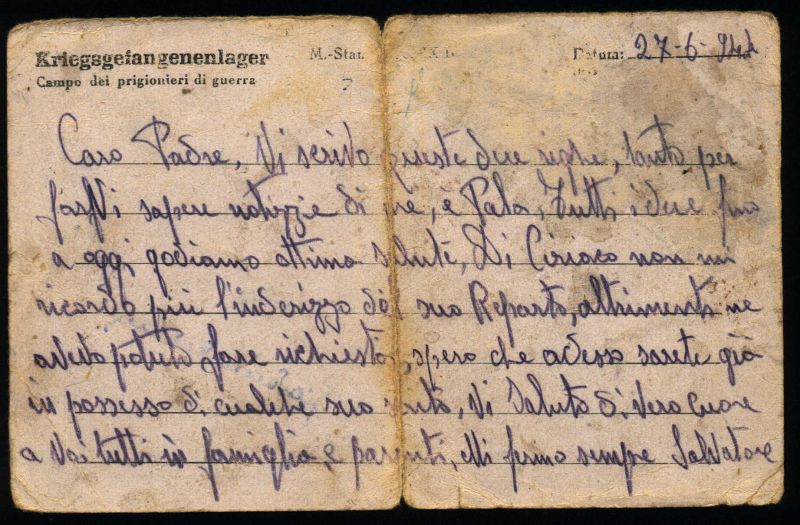 Kriegsgefangenenlager M.-Stam. Datum: 27-6-944
Campo dei prigionieri di guerra
Caro Padre, Vi scrivo queste due righe, tanto per
farVi sapere notizzie di me, è Pala, Tutti i due fino
a oggi godiamo ottima salute, Di Ciriaco non mi
ricordo più l'inderizzo del suo Reparto, altrimenti ne
avevo potuto fare richiesta, spero che adesso sarete già
in possesso di qualche suo, Vi Saluto di vero cuore
a Voi tutti in famiglia, e parenti, Mi firmo sempre Salvatore